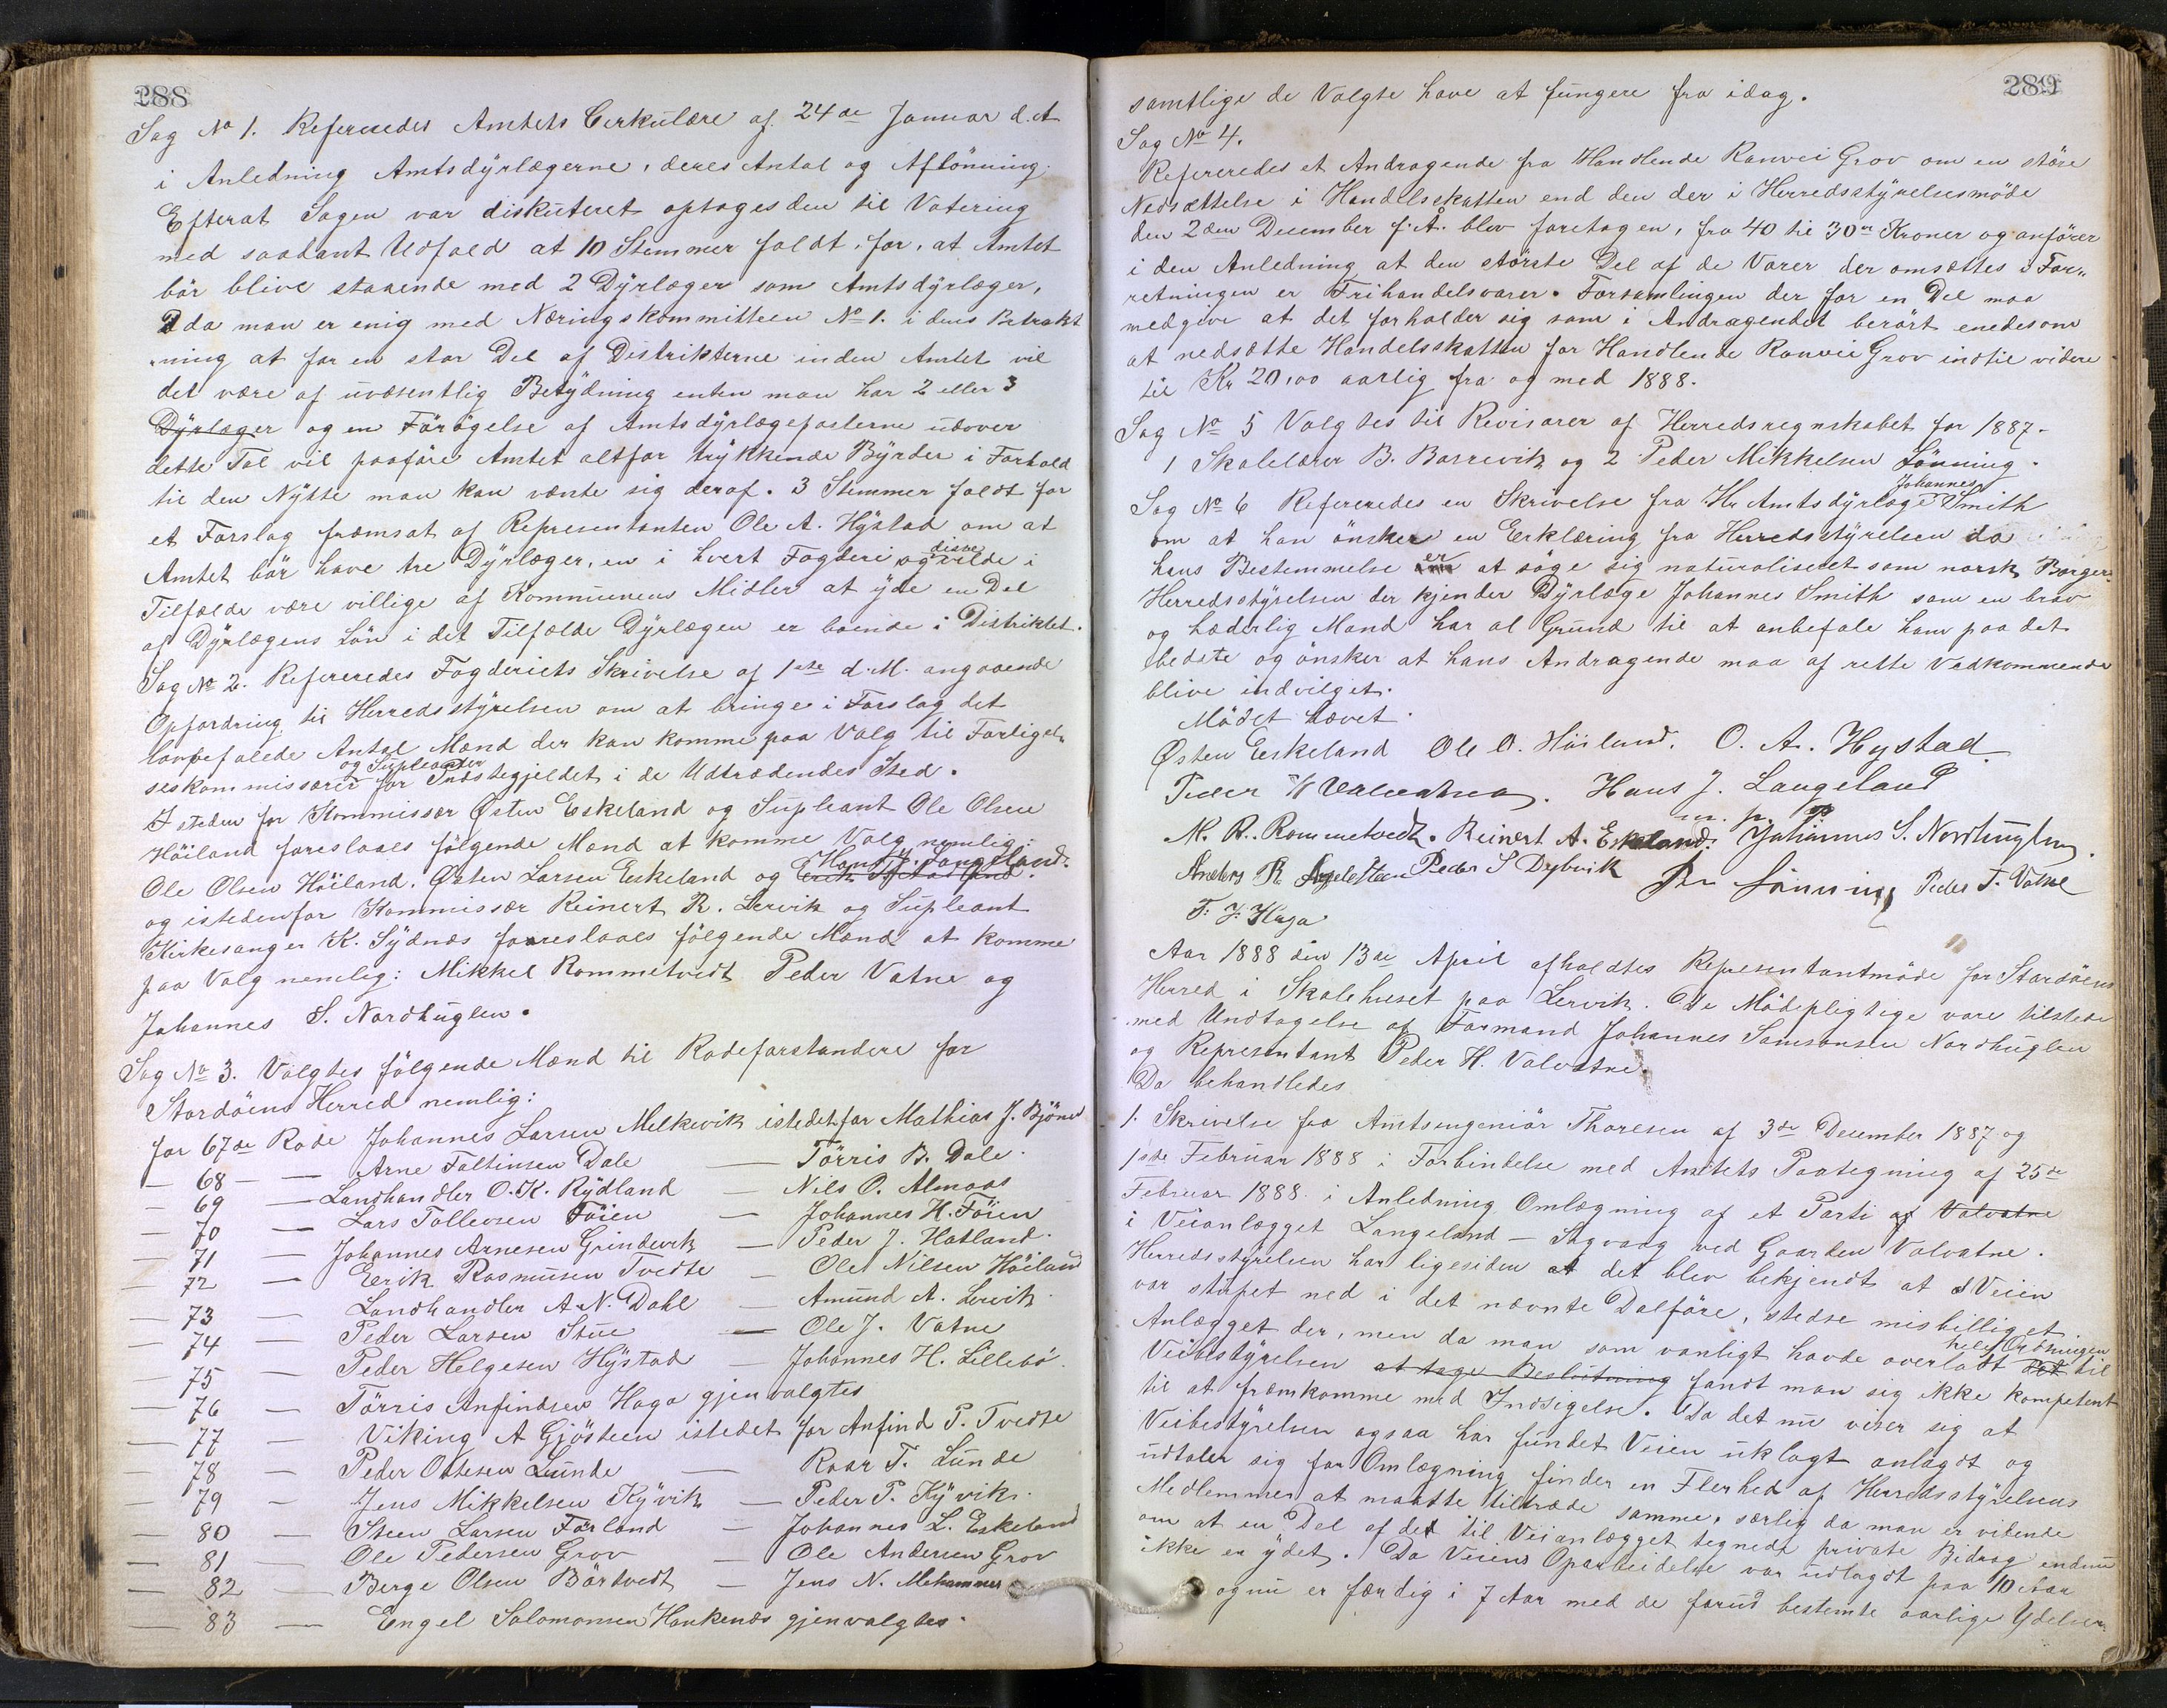 288
Sag No 1. Refereredes Amtets Cirkulære af 24de Januar d.A
i Anledning Amtsdyrlægerne, deres Antal og Aflönning.
Efterat Sagen var diskuteret optoges den til Votering
med saadant Udfald at 10 Stemmer faldt for, at Amtet
bör blive staaende med 2 Dyrlæger som Amtsdyrlæger,
da man er enig med Næringskommitteen No 1. i dens Betrakt
"ning at for en stor Del af Distrikterne inden Amtet vil
det være af uvæsentlig Betydning enten man har 2 eller 3
Dyrlæger og en Forögelse af Amtsdyrlægeposterne udover
dette Tal vil paaföre Amtet altfor trykkende Byrder i Forhold
til den Nytte man kan vente sig deraf. 3 Stemmer faldt for
et Forslag fremsat af Representanten Ole A. Hystad om at
Amtet bör have tre Dyrlæger, en i hvert Fogderi og vilde disse i
Tilfælde være villige af Kommunens Midler at yde en Del
af Dyrlægens Lön i det Tilfælde Dyrlægen er boende i Distriktet.
Sag No 2. Refereredes Fogderiets Skrivelse af 1ste d.M. angaaende
Opfordring til Herredsstyrelsen om at bringe i Forslag det
lovbefalede Antal Mænd der kan komme paa Valg til Forligel"
seskommissærer og Supleanter for Præstegjeldet i de Udtrædendes Sted.
I steden for Kommissær Østen Eskeland og Supleant Ole Olsen
Höiland foreslaaes fölgende Mænd at komme Valg nemlig:
Ole Olsen Höiland. Østen Larsen Eskeland og Hans J. Langeland.
og istedenfor Kommissær Reinert R. Lervik og Supleant
Kirkesanger K. Sydnæs foreslaaes fölgende Mænd at komme
paa Valg nemlig: Mikkel Rommetvedt Peder Vatne og
Johannes S. Nordhuglen.
Sag No 3. Valgtes fölgende Mænd til Rodeforstandere for
Stordöens Herred nemlig:
for 67de Rode Johannes Larsen Melkevik istedetfor Mathias J. Bjönes
— 68 — — Arne Faltinsen Dale — Törris B. Dale.
— 69 — Landhandler O.K. Rydland — Nils O. Almaas
— 70 — Lars Tollevsen Föien — Johannes H. Föien
— 71 — Johannes Arnesen Grindevik — Peder J. Hatland.
— 72 — Eerik Rasmusen Tvedte — Ole Nilsen Höiland
— 73 — Landhandler A.N. Dahl — Amund A. Lervik.
— 74 — Peder Larsen Stue — Ole J. Vatne
— 75 — Peder Helgesen Hystad — Johannes H. Lillebö.
— 76 — Törris Anfindsen Haga gjenvalgtes
— 77 — Viking A Gjösteen istedet for Anfind P. Tvedte
— 78 — Peder Ottesen Lunde — Roar T. Lunde
— 79 — Jens Mikkelsen Kyvik — Peder P. Kyvik.
— 80 — Steen Larsen Förland — Johannes L. Eskeland
— 81 — Ole Pedersen Grov — Ole Andersen Grov
— 82 — Berge Olsen Börtvedt — Jens N. Mehammer
— 83 — Engel Salomonsen Haukenæs gjenvalgtes.
289
samtlige de Valgte have at fungere fra idag.
Sag No 4.
Refereredes et Andragende fra Handlende Ranvei Grov om en störe
Nedsættelse i Handelsskatten end den der i Herredsstyrelsesmöde
den 2den Desember f.Å. blev foretagen, fra 40 til 30 Kroner og anförer
i den Anledning at den störste Del af de Varer der omsættes i For"
retningen er Frihandelsvarer. Forsamlingen der for en Del maa
medgive at det forholder sig som i Andragendet berört enedes om
at nedsætte Handelsskatten for Handlende Ranvei Grov indtil videre
til Kr 20,00 aarlig fra og med 1888.
Sag No 5 Valgtes til Revisorer af Herredsregnskabet for 1887.
1 Skolelærer B. Barrevik og 2 Peder Mikkelsen Lönning.
Sag No 6 Refereredes en Skrivelse fra Hr Amtsdyrlæge Johannes Smith
om at han önsker en Erklæring fra Herredsstyrelsen da
hans Bestemmelse er at söge sig naturaliseret som norsk Borger.
Herredsstyrelsen der kjender Dyrlæge Johannes Smith som en brav
og hæderlig Mand har al Grund til at anbefale ham paa det
bedste og önsker at hans Andragende maa af rette Vedkommende
blive indvilget.
Mödet hævet.
Østen Eskeland Ole O. Höiland. O. A. Hystad.
Peder H Valvatna. Hans J. Langeland
m. p. P
M. R. Rommetvedt. Reinert A. Eskeland. Johannes S. Nordhuglen.
Anders R. Peder S Dybvik Lönning Peder T. Vatne
T. J. Haga
Aar 1888 den 13de April afholdtes Representantmöde for Stordöens
Herred i Skolehuset paa Lervik. De Mödepligtige vare tilstede
med Undtagelse af Formand Johannes Samsonsen Nordhuglen
og Representant Peder H. Valvatne.
Da behandledes
1. Skrivelse fra Amtsingeniör Thoresen af 3de Desember 1887 og
1ste Februar 1888 i Forbindelse med Amtets Paategning af 25de
Februar 1888 i Anledning Omlægning af et Parti af Valvatne
i Veianlægget Langeland — Sagvaag ved Gaarden Valvatne.
Herredsstyrelsen har ligesiden at det blev bekjendt at Veien
var stupet ned i det nævnte Dalföre, stedse misbilliget
Anlægget der, men da man som vanligt havde overladt hele Ordningen til
Veibestyrelsen at tage Beslutning fandt man sig ikke kompetent
til at fremkomme med Indsigelse. Da det nu viser sig at
Veibestyrelsen ogsaa har fundet Veien uklogt anlagdt og
udtaler sig for Omlægning finder en Flerhed af Herredsstyrelsens
Medlemmer at maatte tiltræde samme, særlig da man er vidende
om at en Del af det til Veianlægget tegnede private Bidrag endnu
ikke er ydet. Da Veiens Oparbeidelse var udlagdt paa 10 Aar
og nu er færdig i 7 Aar med de forud bestemte aarlige Ydelser